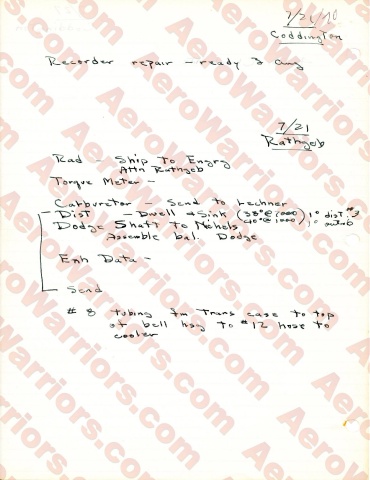 7/21/70
Coddington
Recorder repair - ready 3 Aug
7/21
Rathgeb
Rad - Ship To Engrg
Attn Rathgeb
Torque Meter -
Carburetor - Send to Lechner
Dist - Dwell & Sink (38° @ 7000) 1° dist. #3
40° @ 1000) 1°
Dodge Shaft To Nichels
Assemble bal. Dodge
Exh Data -
Send
# 8 tubing fm Trans case to top
of bell hsg to #12 hose to
cooler
AeroWarriors.com